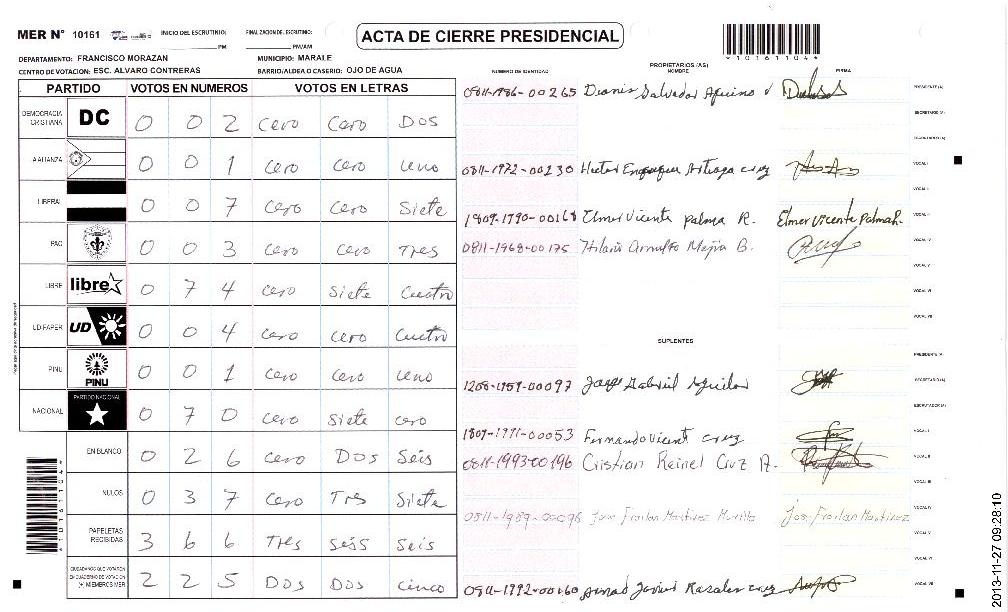 MER N° 10161 INICIO DEL ESCRUTINIO: PM FINALIZACION DEL ESCRUTINIO: PM/AM
ACTA DE CIERRE PRESIDENCIAL
*10161104*
DEPARTAMENTO: FRANCISCO MORAZAN MUNICIPIO: MARALE
CENTRO DE VOTACION: ESC. ALVARO CONTRERAS BARRIO/ALDEA O CASERIO: OJO DE AGUA
NUMERO DE IDENTIDAD PROPIETARIOS (AS) NOMBRE FIRMA
PARTIDO VOTOS EN NUMEROS VOTOS EN LETRAS
DEMOCRACIA CRISTIANA DC 0 0 2 Cero Cero Dos
AALIANZA 0 0 1 Cero Cero Uno
LIBERAL 0 0 7 Cero Cero Siete
PAC 0 0 3 Cero Cero Tres
LIBRE libre 0 7 4 Cero Siete Cuatro
UD/FAPER UD 0 0 4 Cero Cero Cuatro
PINU PINU 0 0 1 Cero Cero Uno
NACIONAL PARTIDO NACIONAL 0 7 0 Cero Siete Cero
EN BLANCO 0 2 6 Cero Dos Seis
NULOS 0 3 7 Cero Tres Siete
PAPELETAS RECIBIDAS 3 6 6 Tres Seis Seis
CIUDADANOS QUE VOTARON EN CUADERNO DE VOTACION + MIEMBROS MER 2 2 5 Dos Dos Cinco
0811-1986-00265 Salvador PRESIDENTE (A)
SECRETARIO (A)
ESCRUTADOR (A)
0811-1972-00230 Hector Enrique Artiaga Cruz VOCAL I
VOCAL II
Elmer Vicente Palma R. Elmer Vicente Palma R. VOCAL III
0811-1968-00175 Hilario Arnulfo Mejia B. VOCAL IV
VOCAL V
VOCAL VI
VOCAL VII
SUPLENTES
PRESIDENTE (A)
1200-1959-00097 Jorge Gabriel Aguilar SECRETARIO (A)
ESCRUTADOR (A)
Fernando Vicent Cruz VOCAL I
0811-1993-00196 Cristian Reinel Cruz A. VOCAL II
VOCAL III
0811-1989-00096 Jose Froilan Martinez Murillo Jose Froilan Martinez VOCAL IV
VOCAL V
VOCAL VI
Javier Rosales Cruz VOCAL VII
*10161104*
2013-11-27 09:28:10